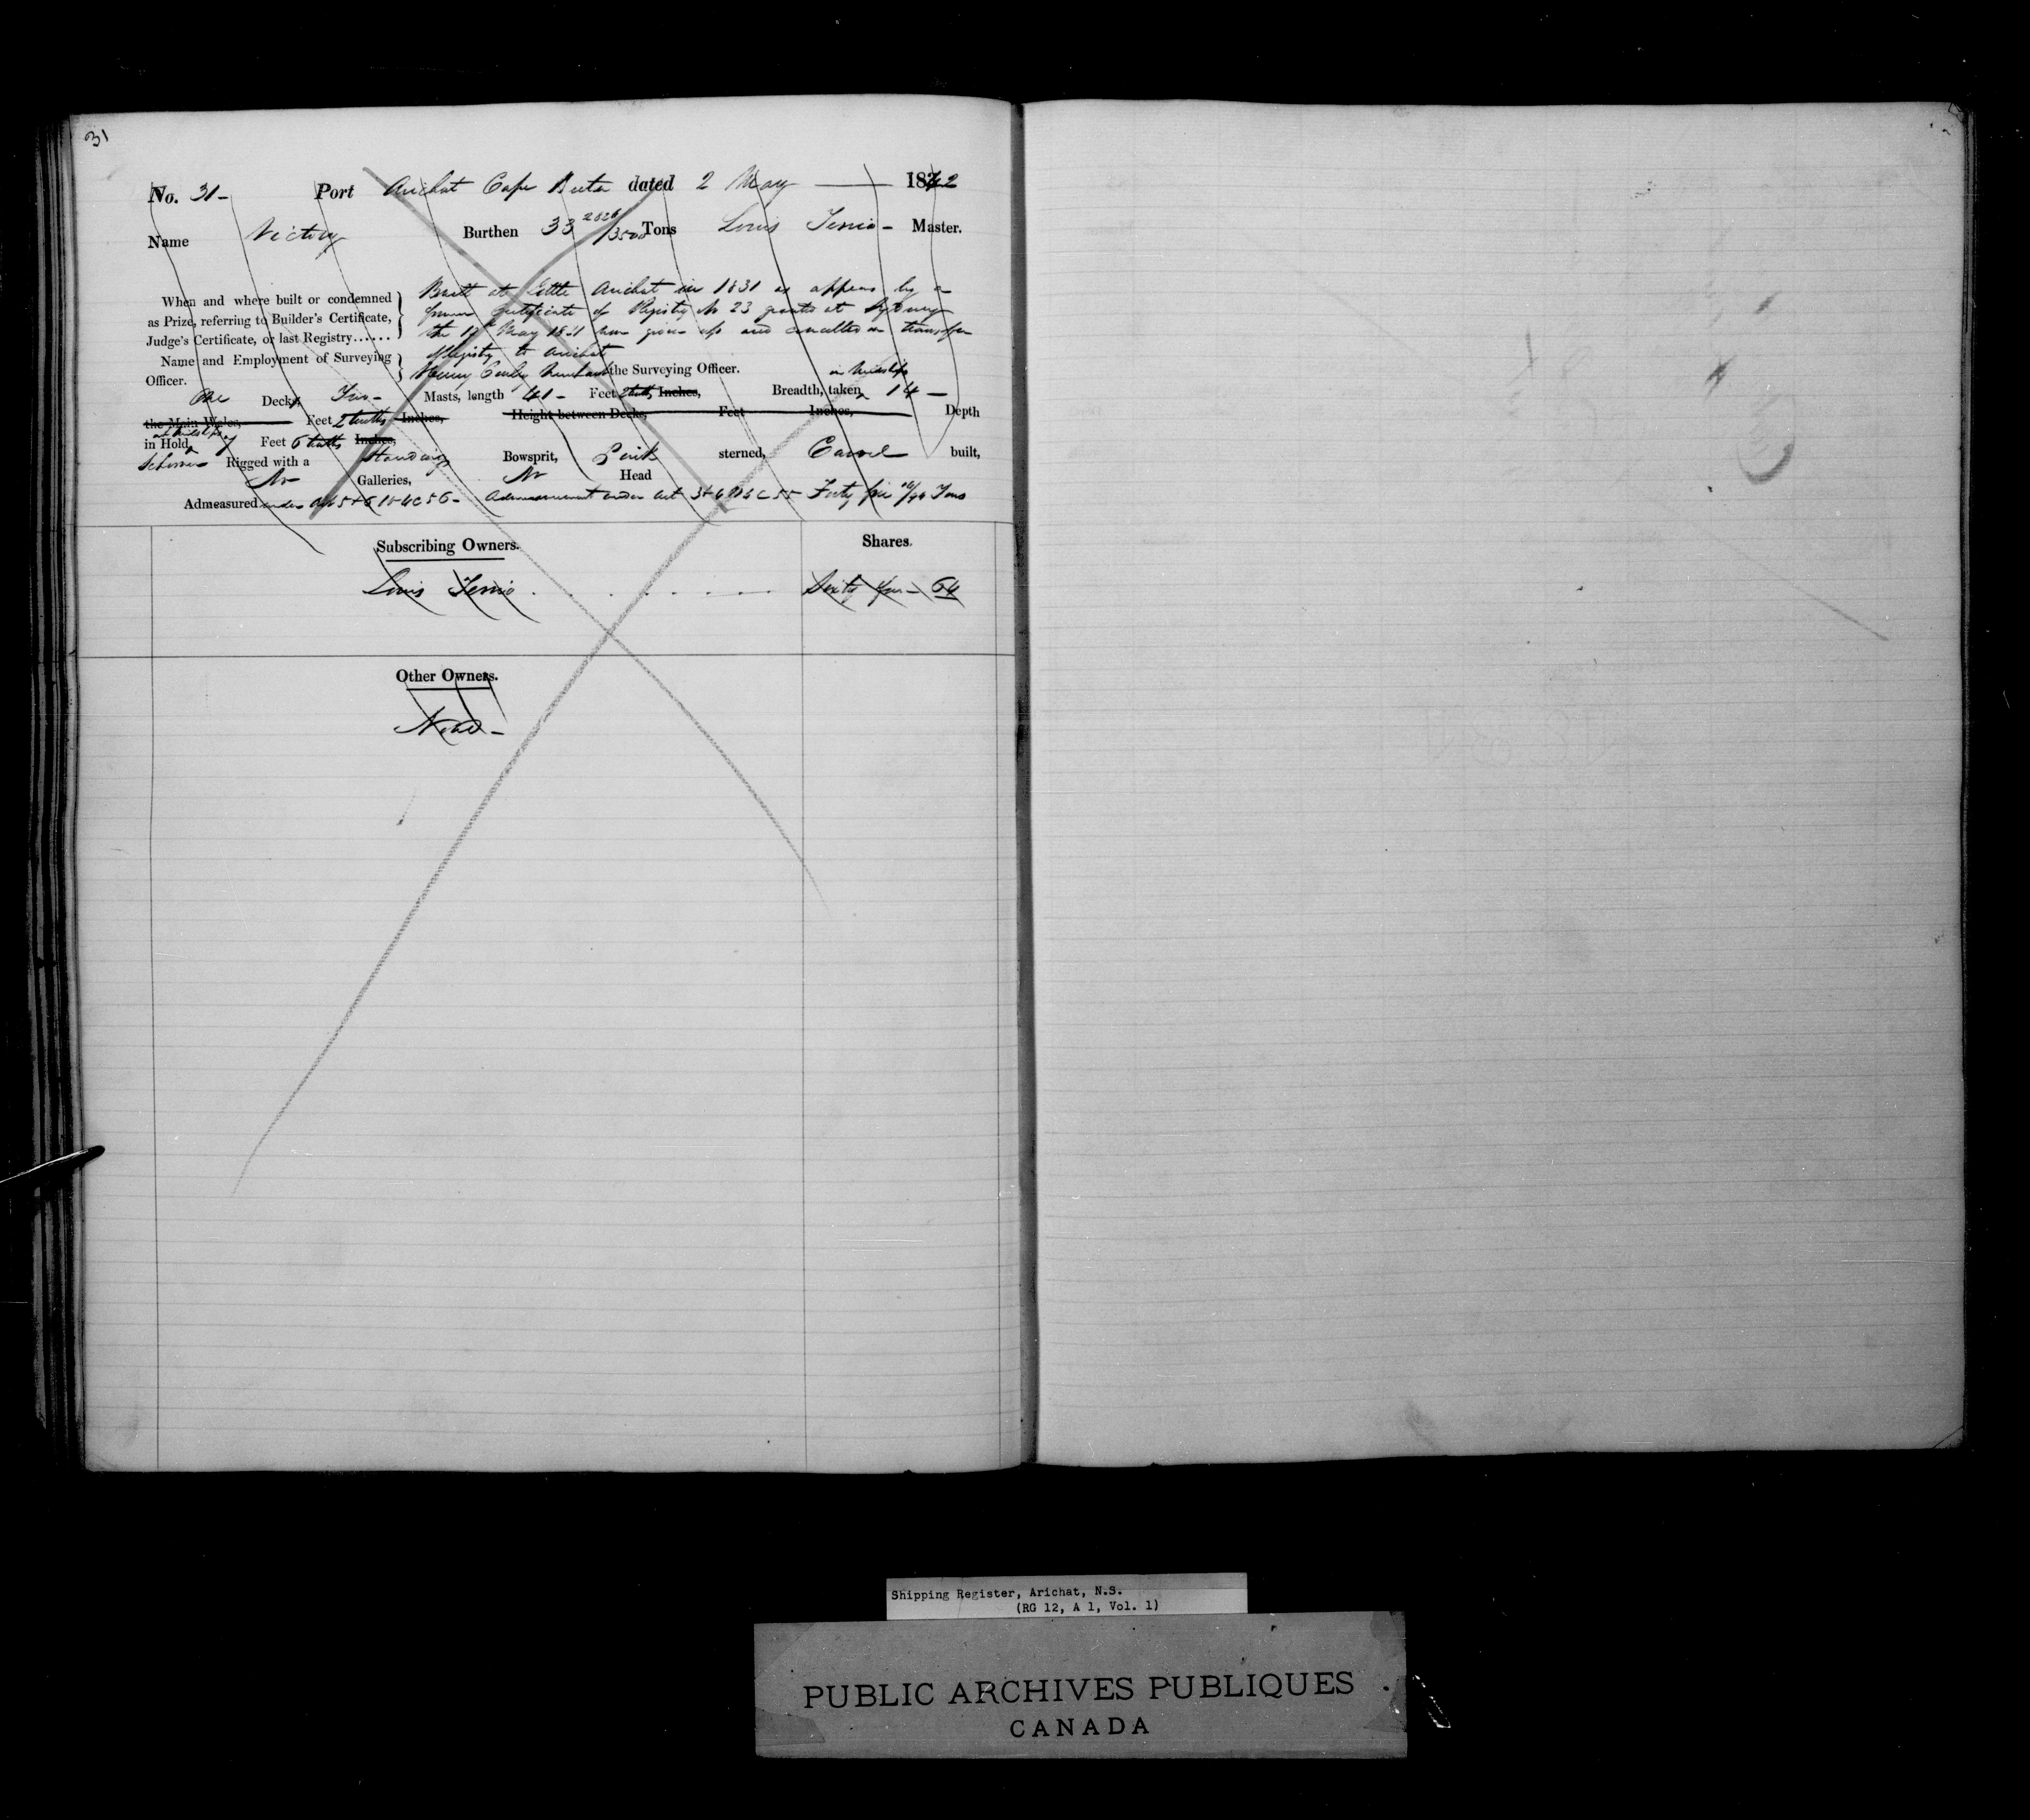 31
No. 31- Port Arichat Cape Breton dated 2 May — 1842
Name Victory Burthen 33 2826/3500 Tons Louis Terrio - Master.
When and where built or condemned as Prize, referring to Builder's Certificate, Judge's Certificate, or last Registry......
Built at Little Arichat in 1831 as appears by a
former Certificate of Registry No 23 granted at Sydney
the May 1831 now given up and cancelled on transfer
of Registry to Arichat
Name and Employment of Surveying Officer.
Henry the Surveying Officer.
One Decks, Two - Masts, length 41 - Feet 2 tenths Inches, Breadth, taken in Midships 14 -
the Main Wales, Feet 2 tenths Inches, Height between Decks, Feet Inches, Depth
in Hold at Midships Feet 6 tenths Inches,
Schooner Rigged with a Standing Bowsprit, Pink sterned, Carvel built,
No Galleries, No Head
Admeasured under Act 5+6 W 4 C 56 - Admeasurement under Act 3+4 W 4 C 55 Forty Tons
Subscribing Owners. Shares.
Louis Terrio . . . . . . Sixty four - 64
Other Owners.
None -
Shipping Register, Arichat, N.S.
(RG 12, A 1, Vol. 1)
PUBLIC ARCHIVES PUBLIQUES
CANADA